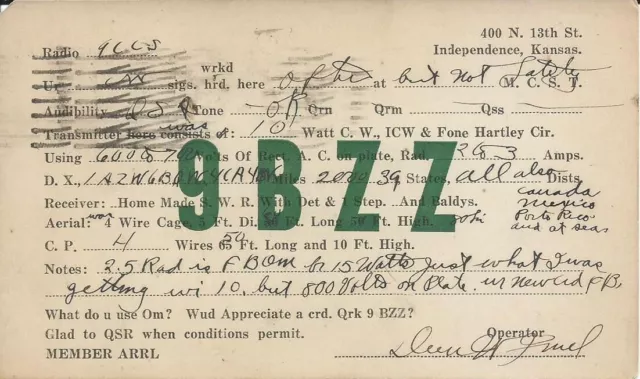 400 N. 13th St.
Radio 9CCS Independence, Kansas.
wrkd
Ur CW sigs. hrd. here often at but not lately M. C. S. T.
Audibility Tone OK Qrn Qrm Qss
was
Transmitter here consists of: 10 Watt C. W., ICW & Fone Hartley Cir.
Using 600 to Volts Of Rect. A. C. on plate, Rad. Amps.
D. X., Miles 2000 39 States, all also Dists.
Canada
Mexico
Porto Rico
and at seas
Receiver: Home Made S. W. R. With Det & 1 Step. And Baldys.
Aerial: was 4 Wire Cage, 5 Ft. Di. Ft. Long 50 Ft. High.
C. P. 4 Wires 65 50 Ft. Long and 10 Ft. High.
9BZZ
Notes: 2.5 Rad is F B Om fr 15 Watts Just what I was
getting wi 10. but 800 Volts on Plate ur new crd F B,
What do u use Om? Wud Appreciate a crd. Qrk 9 BZZ?
Glad to QSR when conditions permit. Operator
MEMBER ARRL